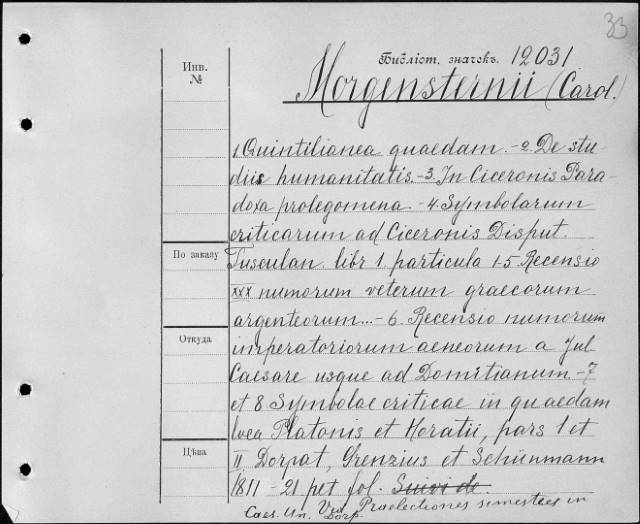 33
Библіот. значекъ. 12031
Инв.
№
Morgensternii (Carol.)
1 Quintilianea quaedam. - 2. De stu-
diis humanitatis. - 3. In Ciceronis Para-
doxa prolegomena - 4. Symbolarum
criticarum ad Ciceronis Disput.
По заказу
Tusculan. libr 1. particula 1 - 5 Recensio
XXX numorum veterum graecorum
argenteorum... - 6. Recensio numorum
Откуда
imperatoriorum aeneorum a Jul.
Caesare usque ad Domitianum. - 7
et 8 Symbolae criticae in quaedam
loca Platonis et Horatii, pars 1 et
Цѣна
II Dorpat, Grenzius et Schünmann
1811 - 21 pet fol. Suivi de.
Caes. Un. Dorp. Praelectiones semestres in